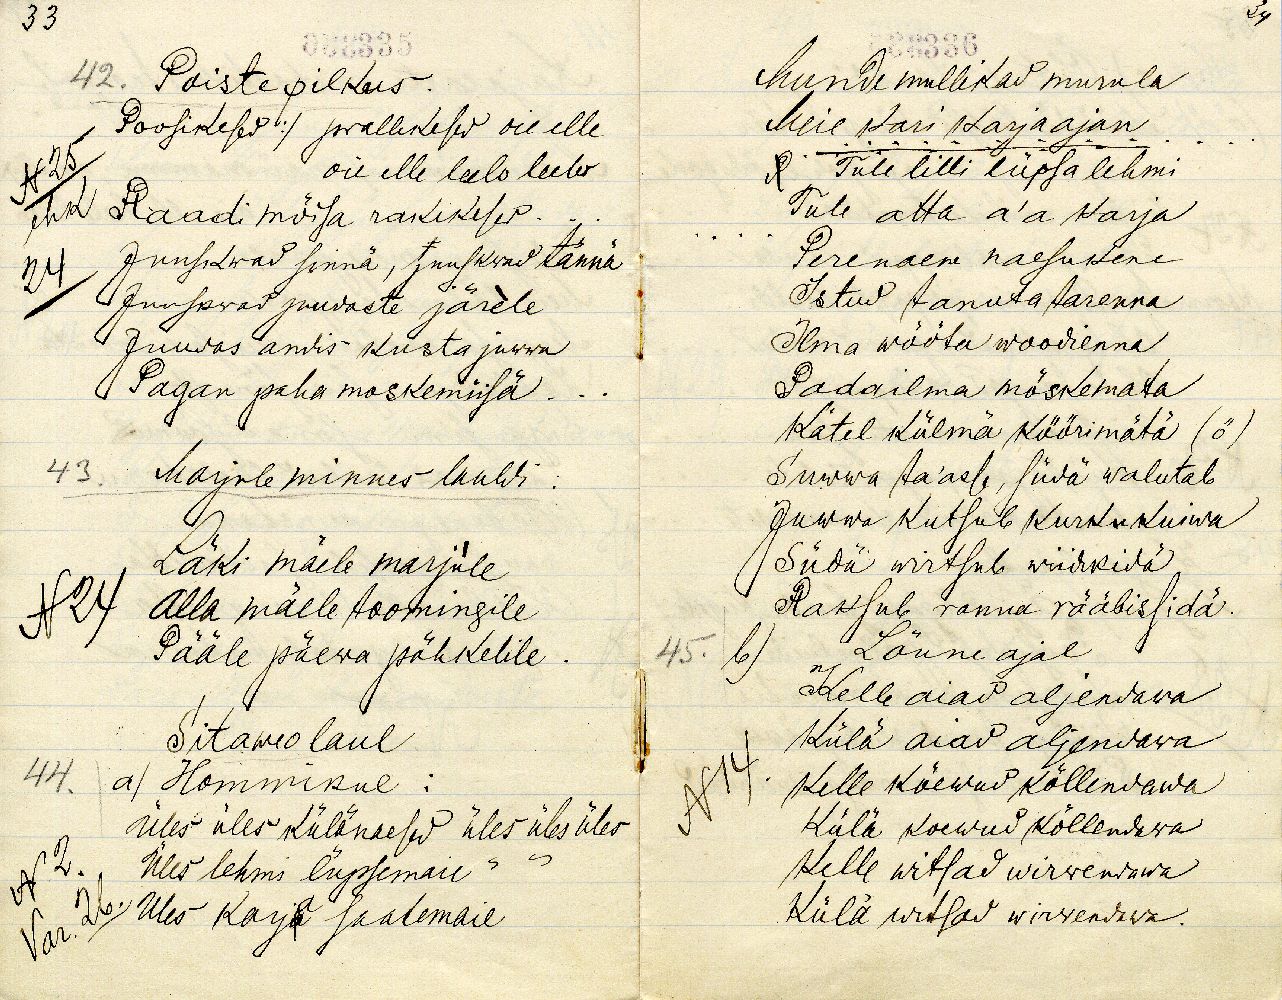 33
42. Poiste pilkus.
Poosikesed :/ prallikesed oie elle
oie elle leelo leelo
N 25
ehk
24
Raadi mõisa rakikesed. . .
Juuskwad sinnä, juuskwad tännä
Juuskwad juudaste järele
Juudas andis kusta juwwa
Pagan paha moskemiisä . . .
43. Marjule minnes lauldi:
Läki mäele marjule
N 24
Alla mäele toomingile
Pääle päewa pähkelile.
Sitaweo laul
44. a/ Hommikul :
Üles üles külänaesed üles üles üles
Üles lehmi lüpsemaie " "
N 2.
Var. 26.
Üles karja saatemaie
34
Munde mullikad murula
Meie kari karjaajan
Tule lilli lüpsa lehmi
Tule atta a'a karja
. . . .
Perenaene naesukene
Istud tanuta tarenna
Ilma wööta woodienna
Pada ilma mõskemata
Kätel külmä köörimätä (ö)
Suwwa ta'asse, südä walutab
Juwwa kutsub kurku kuiwa
Südä wirtsub wiidikidä
Raksub ranna rääbissidä.
45. b) Lõune ajal
Kelle aiad aljendawa
Külä aiad aljendawa
N 14.
Kelle köewud köllendawa
Külä koewud köllendawa
Kelle witsad wirwendawa
Külä witsad wirwendawa.